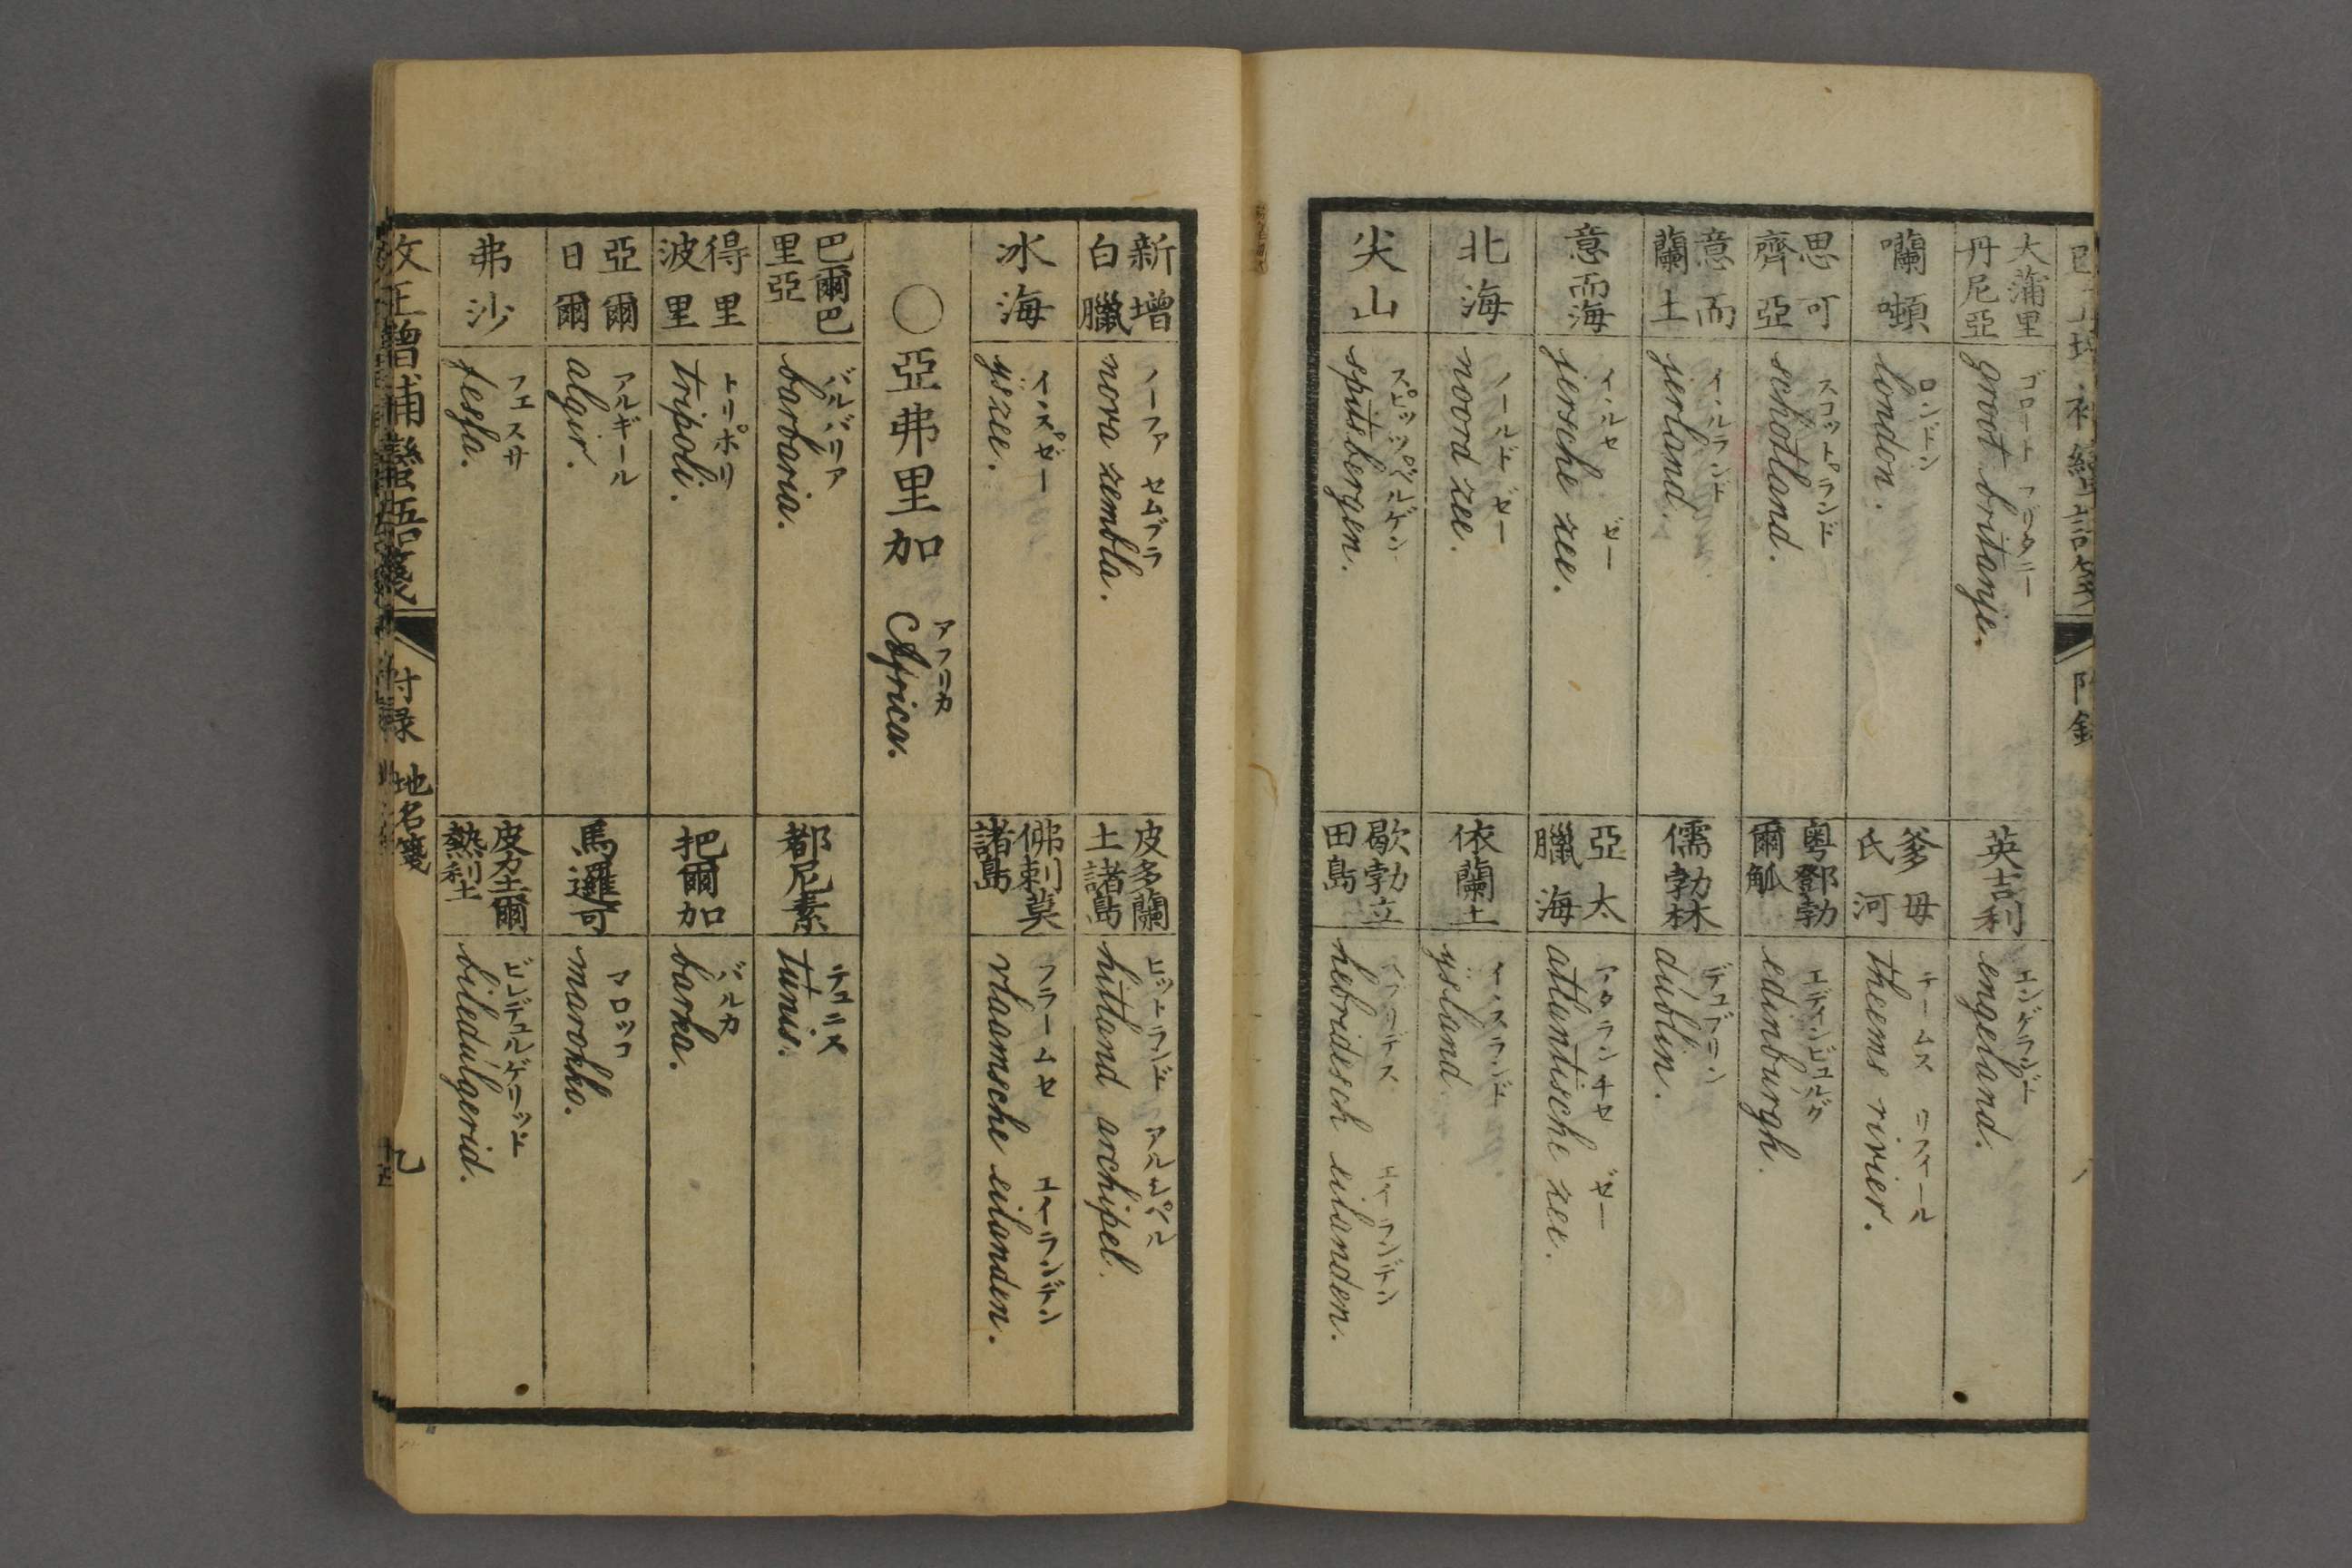 大蒲里丹尼亞
ゴロート ブリタニー
groot britanje.
英吉利
エンゲランド
engeland.
囒噸
ロンドン
london.
爹毋氏河
テームス リフィール
theems rivier.
思可齊亞
スコットランド
schotland.
粤鄧勃爾觚
エディンビュルグ
edinburgh.
意而蘭土
イールランド
jerland.
儒勃林
デュブリン
dublin.
意而海
イールセ ゼー
jersche zee.
亞太臘海
アタランチセ ゼー
atlantische zee.
北海
ノールド ゼー
noord zee.
依蘭土
イースランド
ysland.
尖山
スピッツベルゲン
spitsbergen.
歇勃立田島
エイランデン
hebridesch eilanden.
新增白臘
ノーファ セムブラ
nova zembla.
皮多蘭土諸島
ヒットランド アルシペル
hitland archipel.
冰海
イースゼー
yszee.
佛剌莫諸島
フラームセ エイランデン
vlaamsche eilanden.
○亞弗里加
アフリカ
Africa.
巴爾巴里亞
バルバリア
barbaria.
都尼素
テュニス
tunis.
得里波里
トリポリ
tripoli.
把爾加
バルカ
barka.
亞爾日爾
アルギール
algir.
馬邏可
マロッコ
marokko.
弗沙
フェスサ
fessa.
皮力土爾熱利土
ビレデュルゲリット
biledulgerid.
改正增補蠻語箋 付录 地名箋 九